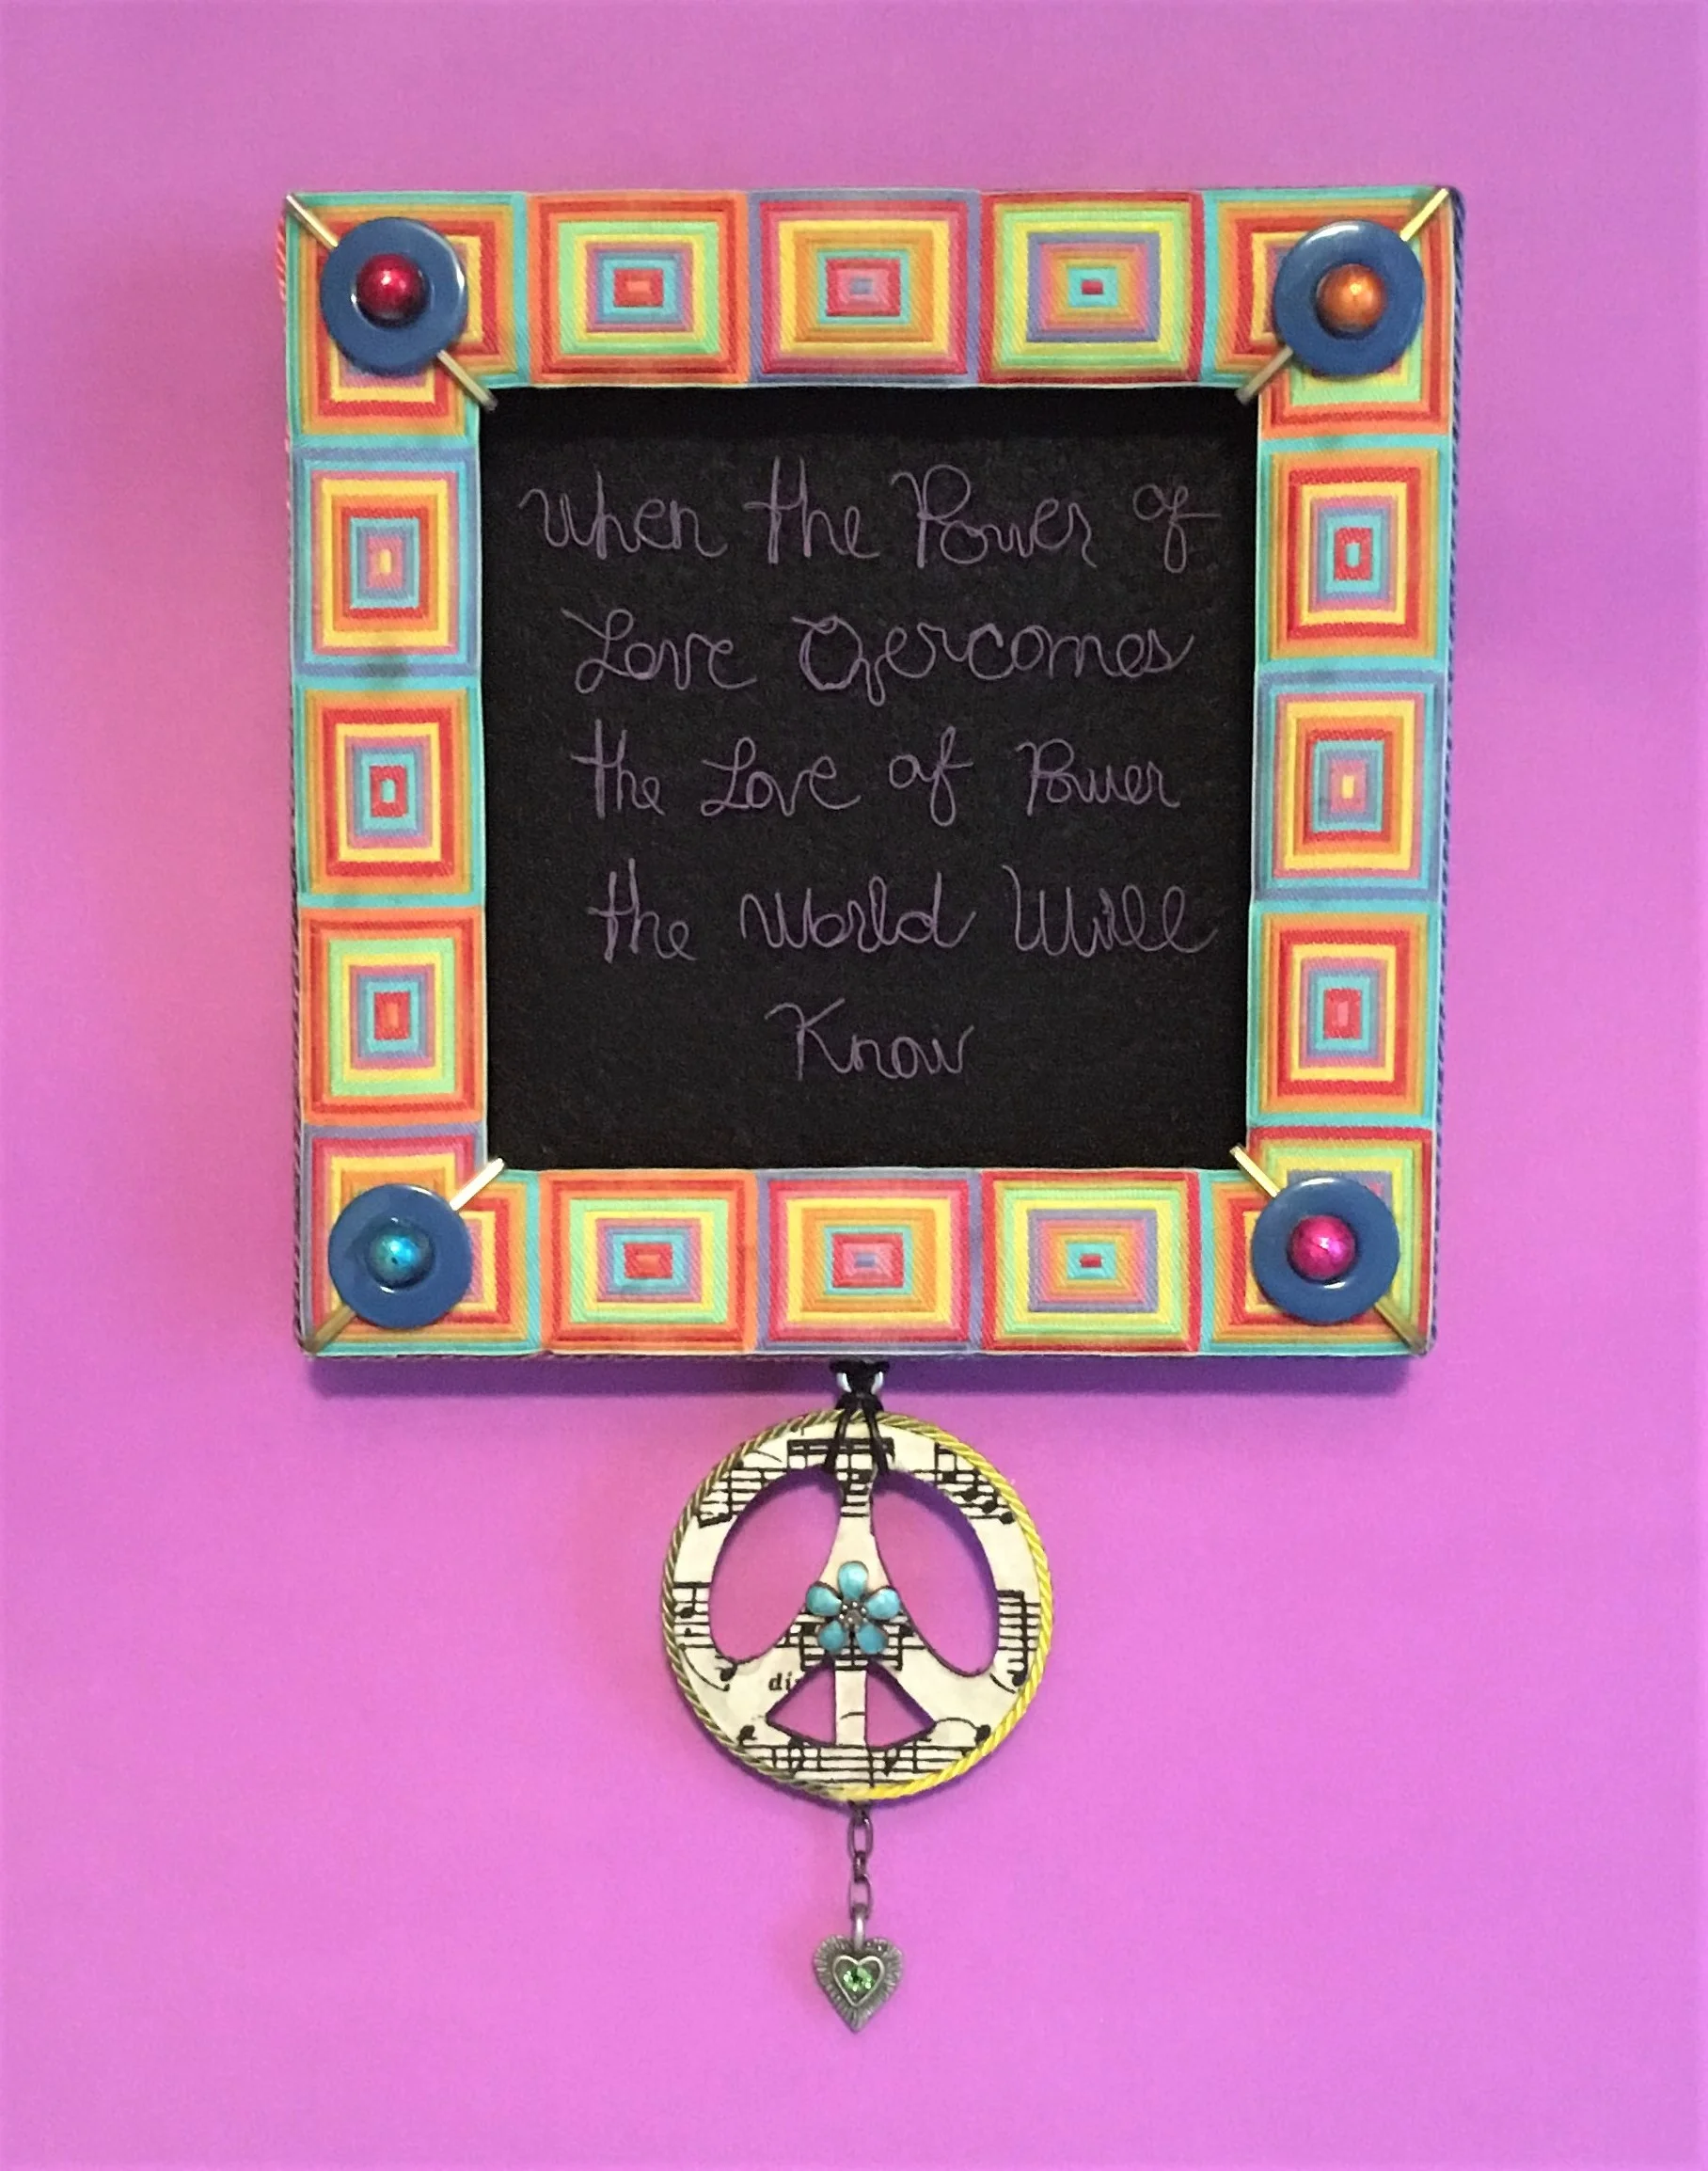 When the Power of
Love Overcomes
the Love of Power
the World Will
Know